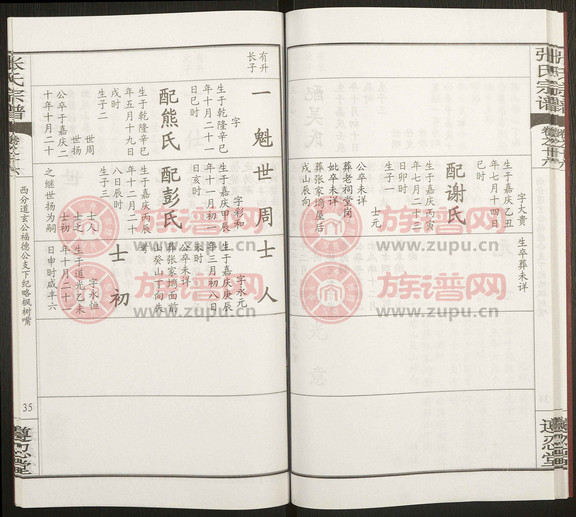 张氏宗谱
字大贵
生于嘉庆乙丑
年七月十四日
巳时
生卒葬未详
配谢氏
生于嘉庆丙寅
年七月二十二
日卯时
子一
士元
公卒未详
葬老祠堂岗
妣卒未详
葬张家塆屋后
戌山辰向
遵忍堂
有升
长子
一魁
字
生于乾隆辛巳
年十月二十一
日巳时
配熊氏
生于乾隆辛巳
年五月十九日
戌时
生子二
世周
世扬
公卒于嘉庆二
十年十月二十
世周
字彩和
年十月初一
日亥时
配彭氏
生于嘉庆丙辰
年十二月十
八日辰时
生子三
士人
士之
士初
之继世扬为嗣
士人
字永元
生于嘉庆庚辰
年三月初八日
未时
公卒未详
葬张家塆面前
山癸山丁向
士初
字永恒
生于道光乙未
年十月二十一
日申时咸丰六
西分道玄公福德公支下纪略枫树嘴
35
张氏宗谱
遵忍堂
族谱网
www.zupu.cn
族谱网
www.zupu.cn
族谱网
www.zupu.cn
族谱网
www.zupu.cn